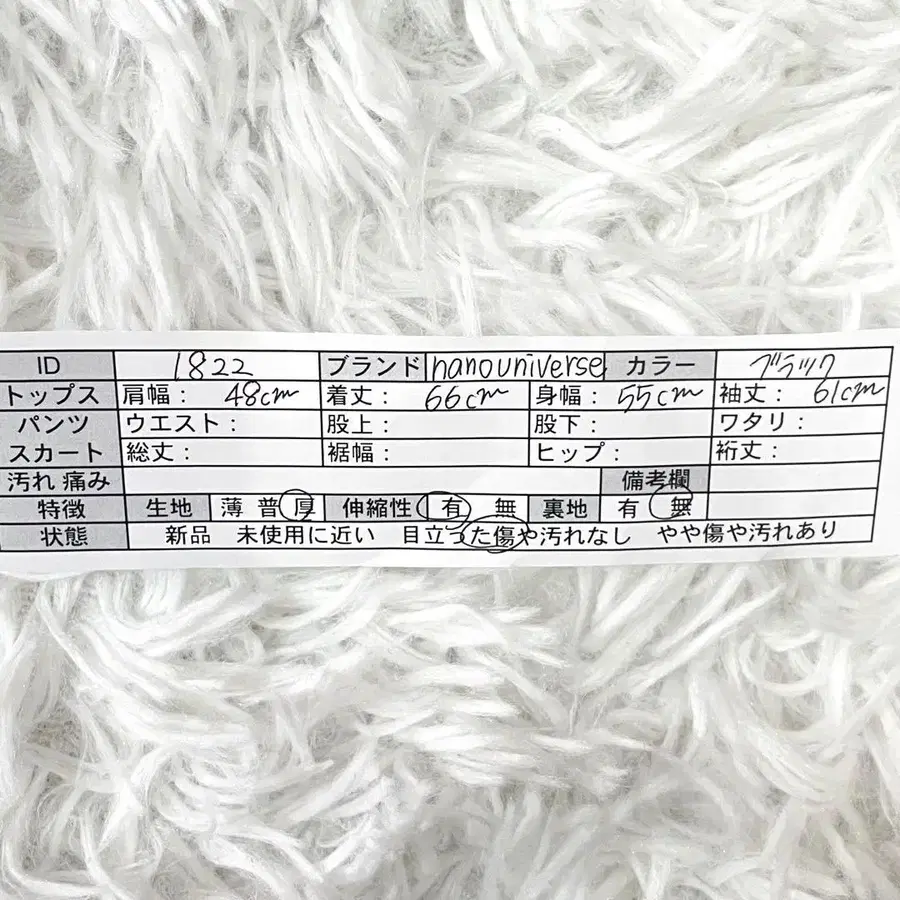 ID 1822 ブランド nanouniverse カラー ブラック
トップス 肩幅： 48cm 着丈： 66cm 身幅： 55cm 袖丈： 61cm
パンツ ウエスト： 股上： 股下： ワタリ：
スカート 総丈： 裾幅： ヒップ： 裄丈：
汚れ 痛み 備考欄
特徴 生地 薄 普 厚 伸縮性 有 無 裏地 有 無
状態 新品 未使用に近い 目立った傷や汚れなし やや傷や汚れあり